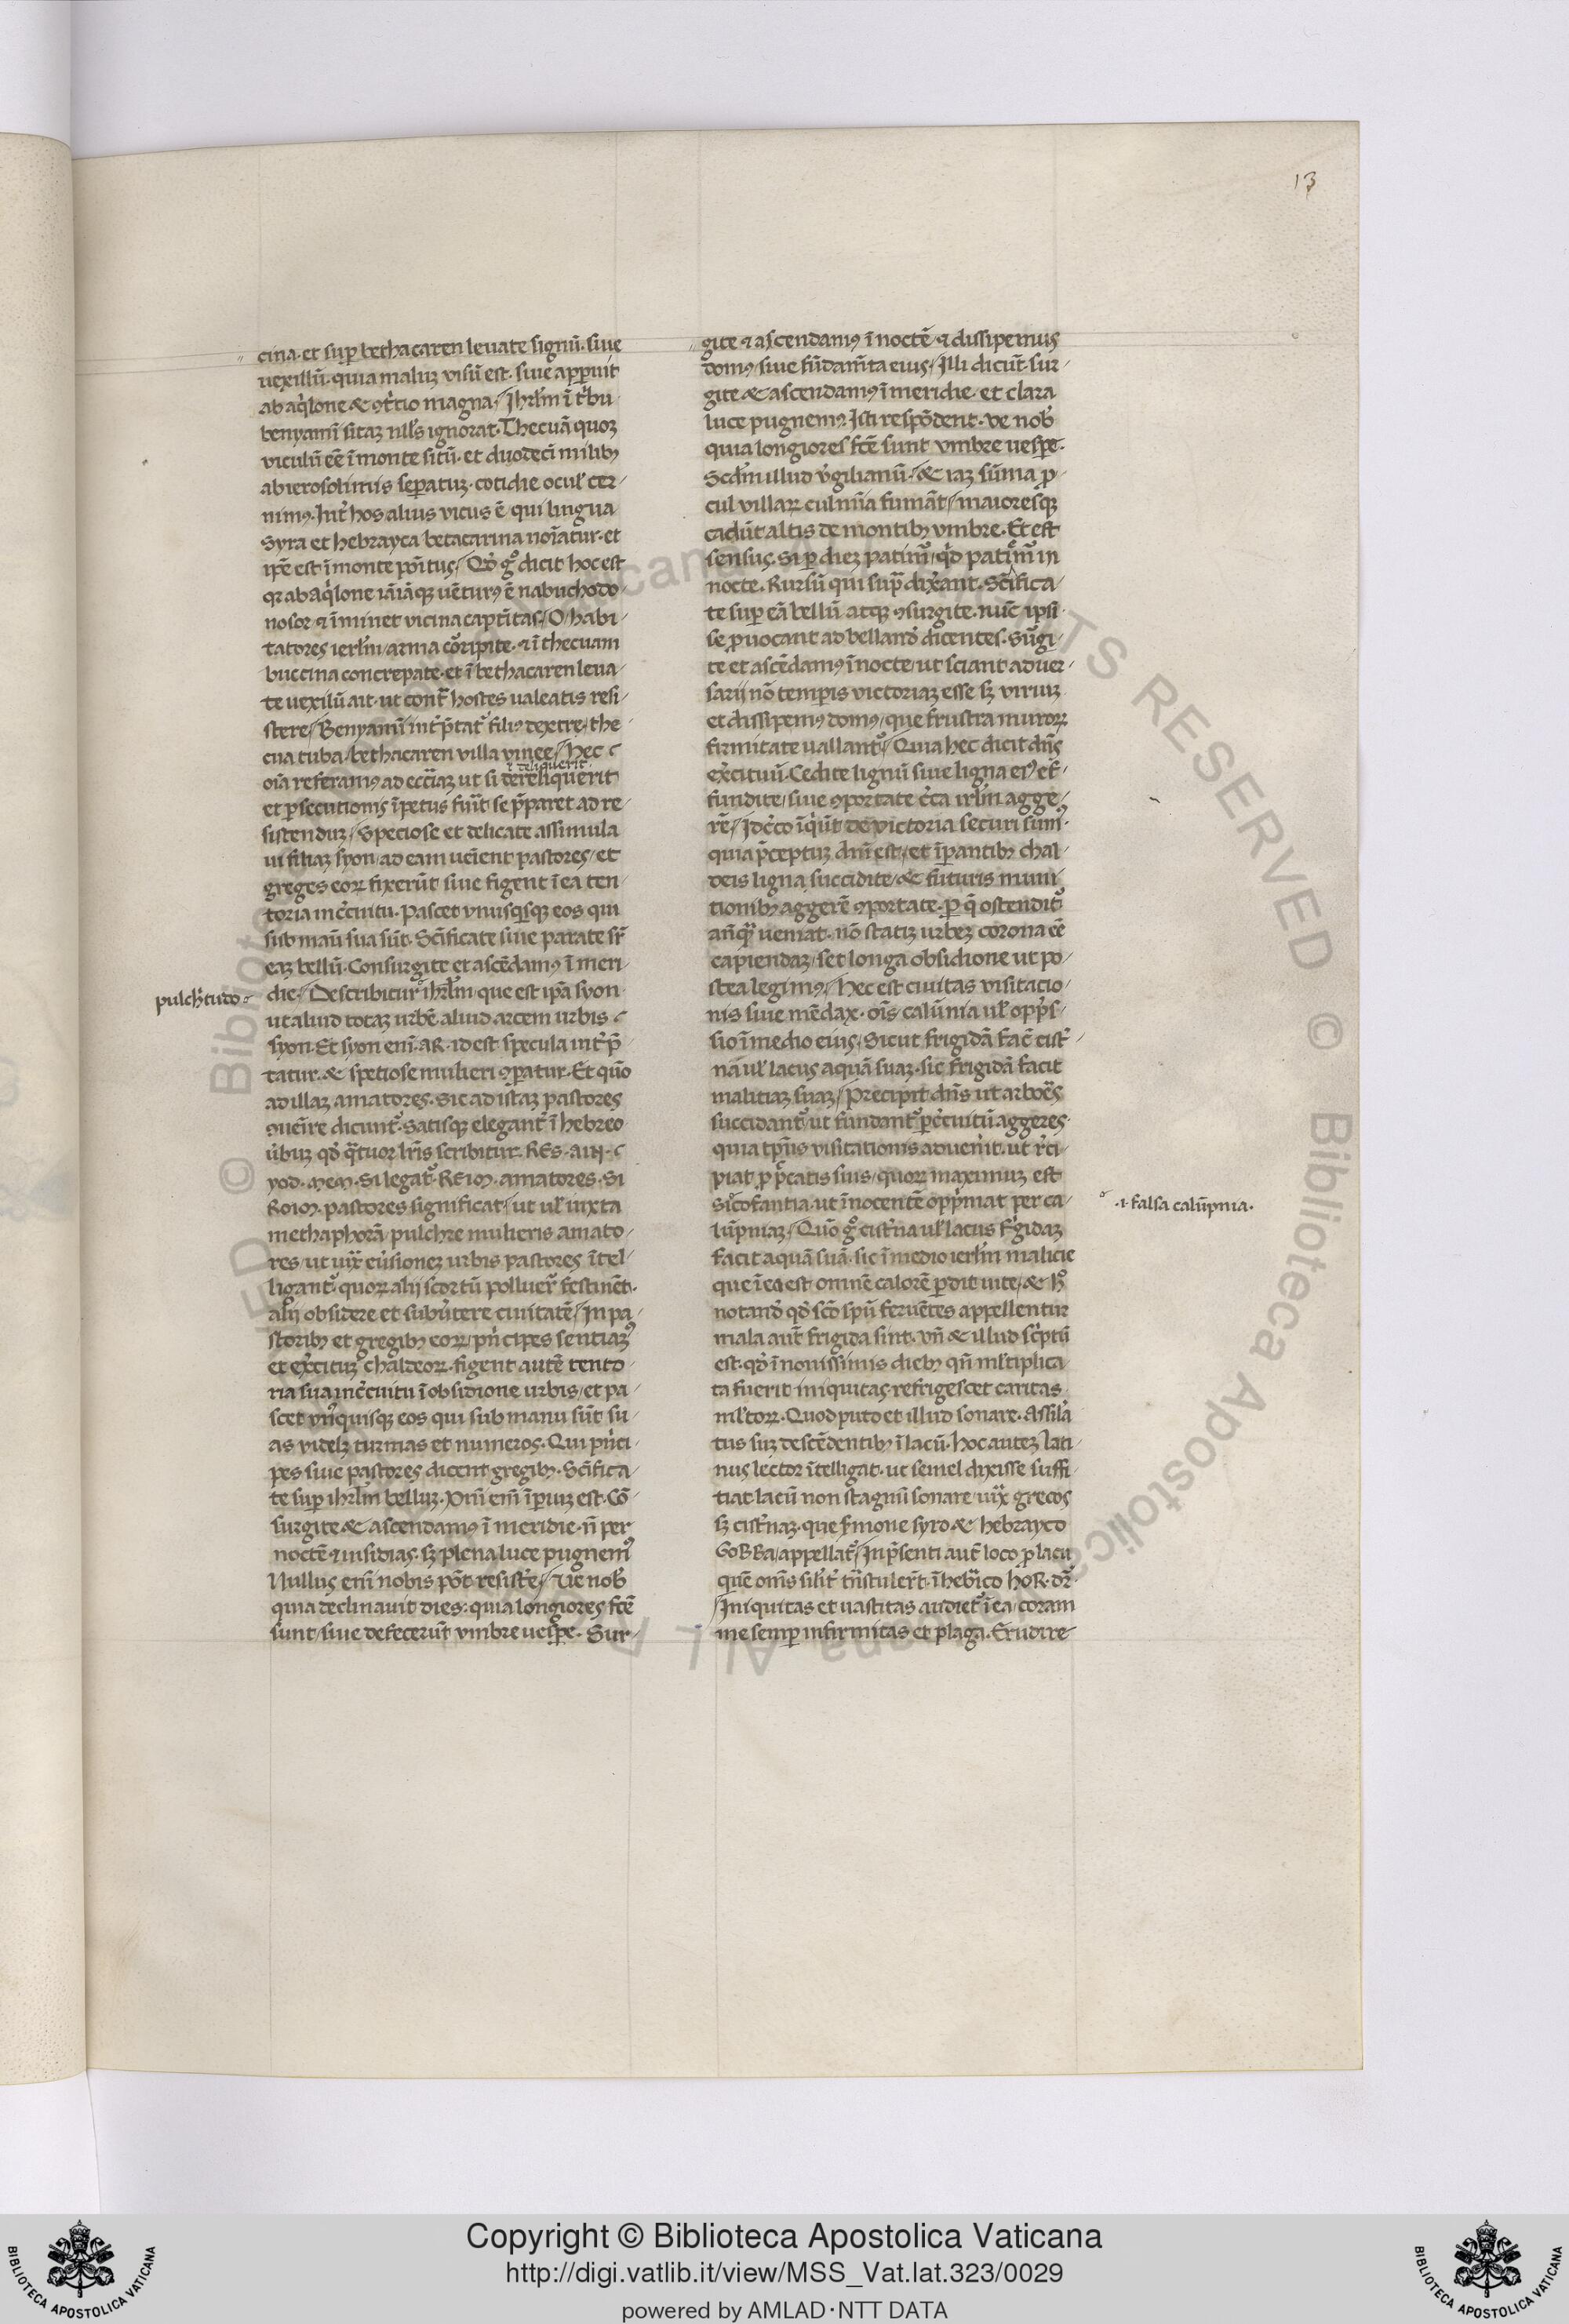 13
cina. et sup̱ bethacaren leuate signū. siue
uexillū. quia maluz visū est. siue app̱uit
ab aq̓lone & ꝯt̓cio magna. Jhrl̄m ī t̓bu
benyamī sitaz null̓s ignorat. Thecuā quoꝫ
viculū eē ī monte sitū. et duodecī milibꝫ
ab ierosolimis sep̱atuz. cotidie ocul̓ cer
nimꝰ. Int̓ hos alius vicus ē qui lingua
syra et hebrayca betacarina noīatur. et
ip̄e est ī monte po̓itus. Qd̓ gͦ dicit hoc est
qꝛ ab aq̓lone iā iāqꝫ uētꝰ ē nabuchodo
nosor & īminet vicina captīitas. O habi
tatores ierl̄m arma co̓ripite. & ī thecuam
buccina concrepate. et ī bethacaren leua
te uexillū ait. ut cont̄ hostes ualeatis resi
stere. Benyamī int̓p̄tat᷑ filiꝰ dextre. the
cua tuba. bethacaren villa vinee. Hec
ī deliquerit.
oīa referamꝰ ad eccl̄iaz ut si dereliquerit
et p̱secutionis īpetus fu̓it se p̄paret ad re
sistenduz. Speciose et delicate assimula
ui filiaz syon. ad eam ueīent pastores. et
greges eoꝝ fixerūt siue figent ī ea ten
toria inc̓cuitu. Pascet vnusqisqꝫ eos qui
sub manū sua sūt. Scīficate siue parate sr̄
eaz bellū. Consurgite et ascēdamꝰ ī meri
pulcḣtudo
die. Describitur ihrl̄m que est ip̄a syon
ut aliud totaz urbē aliud arcem urbis
syon. Et syon enī. AR. id est specula int̓p̄
tatur. & spetiose mulieri ꝯp̱atur. Et quō
ad illaz amatores. Sic ad istaz pastores
ꝯueīre dicunt᷑. Satisqꝫ elegant̓ ī hebreo
u̓buz qd̓ q̄tuor lr̄is scribitur. RES. AIN.
yod. MEM. Si legat᷑. REIM. amatores. Si
ROIM. pastores significat. ut ul̓ iuxta
methaphorā pulchre mulieris amato
res. ut uix̄ eu̓sionez urbis pastores ītel
ligant᷑. quoꝝ alij scortū polluer̄ festinēt.
alij obsidere et subu̓tere ciuitatē. In pa
storibꝫ et gregibꝫ eoꝝ. pn̓cipes sentiamꝰ
et exc̓cituz chaldeoꝝ. figent autē tento
ria sua inc̓cuitu ī obsidione urbis. et pa
scet vn̄quisqꝫ eos qui sub manu sūt su
as videlꝫ turmas et numeros. Qui pn̓ci
pes siue pastores dicent gregibꝫ. Scīfica
te sup̱ ihrl̄m belluz. Dn̄i enī īp̱iuz est. Cō
surgite & ascendamꝰ ī meridie. n̄ per
noctē & insidias. sꝫ plena luce pugnemꝰ
Nullus enī nobis pōt resist̓e. Ue nob̓
quia declinauit dies: quia longiores fc̄e
sunt. siue defecerūt vmbre uesp̱e. Sur
gite & ascendamꝰ ī noctē. & dissipemus
domꝰ. siue fūdam̄ta eius. Illi dicūt. sur
gite & ascendamꝰ ī meridie. et clara
luce pugnemꝰ. Isti respōdent. ve nob̓
quia longiores fc̄e sunt vmbre uesp̱e.
Scd̄m illud v̓gilianū. & iaz sūma p̱
cul villaꝝ culmīa fumāt. maioresqꝫ
cadūt altis de montibꝫ vmbre. Et est
sensus. Si p̱ diez patimr᷑. qd̓ patiemr᷑ in
nocte. Rursū qui sup̄ dix̓ant. Scīfica
te sup̱ eā bellū atqꝫ ꝯsurgite. nūc ipsi
se p̱uocant ad bellandū dicentes. Su̓gi
te et ascēdamꝰ ī nocte. ut sciant aduer
sarij nō temp̱is victoriaz esse sꝫ viruiz
et dissipemꝰ domꝰ. que frustra muroꝝ
firmitate uallant᷑. Quia hec dicit dn̄s
exc̓ituū. Cedite lignū siue ligna eiꝰ. & ef
fundite. siue ꝯportate c̓ca irl̄m agge
rē. Idc̓co inq̓ūt de victoria securi sumꝰ.
quia p̄ceptuz dn̄i est. et īp̱antibꝫ chal
deis ligna succidite. & futuris muni
tionibꝫ aggerē ꝯportate. p̱ q̄ ostendit᷑
an̄qꝫ ueniat. nō statiz urbez corona eē
capiendaz. set longa obsidione ut po
stea legimꝰ. Hec est ciuitas visitatio
nis siue mēdax. oīs calūnia ul̓ opp̄s
sio ī medio eius. Sicut frigidā fac̄ cist̓
nā ul̓ lacus aquā suaz. sic frigidā facit
malitiaz suaz. Precipit dn̄s ut arbores
succidant᷑. ut fundant᷑ p̱ c̓cuitū aggeres.
quia tp̄us visitationis aduen̓it. ut r̓ci
piat p̱ p̄ccatis suis. quoꝝ maximuz est
.i. falsa calūpnia.
sicofantia. ut īnocentē opp̓mat per ca
lūpniaz. Quō gͦ cist̓na ul̓ lacus f̓gidaz
facit aquā suā. sic ī medio ierl̄m malicie
que ī ea est omnē calorē p̱dit uite. & hͦ
notandū qd̓ scō spū feruētes appellentur
mala aut̄ frigida sint. vn̄ & illud sc̓ptū
est. qd̓ ī nouissimis diebꝫ qn̄ ml̓tiplica
ta fuerit iniquitas. refrigescet caritas
ml̓toꝝ. Quod puto et illud sonare. Assil̓a
tus suꝫ descēdentibꝫ ī lacū. hoc autez lati
nus lector ītelligat. ut semel dixisse suffi
tiat lacū non stagnū sonare. iux̄ grecos
sꝫ cist̓naz. que s̓mone syro & hebrayco
GOBBA appellat᷑. In p̄senti aut̄ loco p̱ lacu
quē om̄s silit̓ tn̄stuler̄t. ī hebr̓ico hoR. dr̄.
Iniquitas et uastitas audiet᷑ ī ea. coram
me semp̱ infirmitas et plaga. Erudire
Copyright © Biblioteca Apostolica Vaticana
http://digi.vatlib.it/view/MSS_Vat.lat.323/0029
powered by AMLAD·NTT DATA